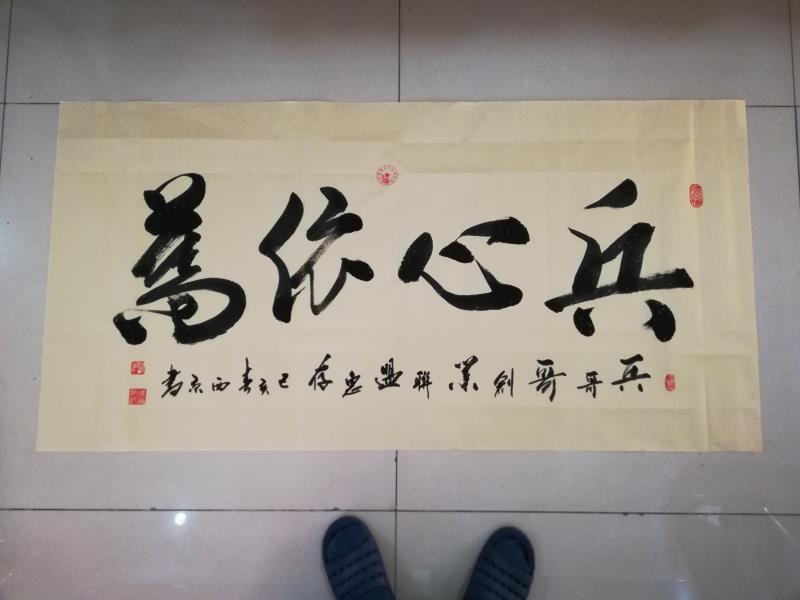 兵心依舊
兵哥哥創業聯盟惠存己亥春西京書